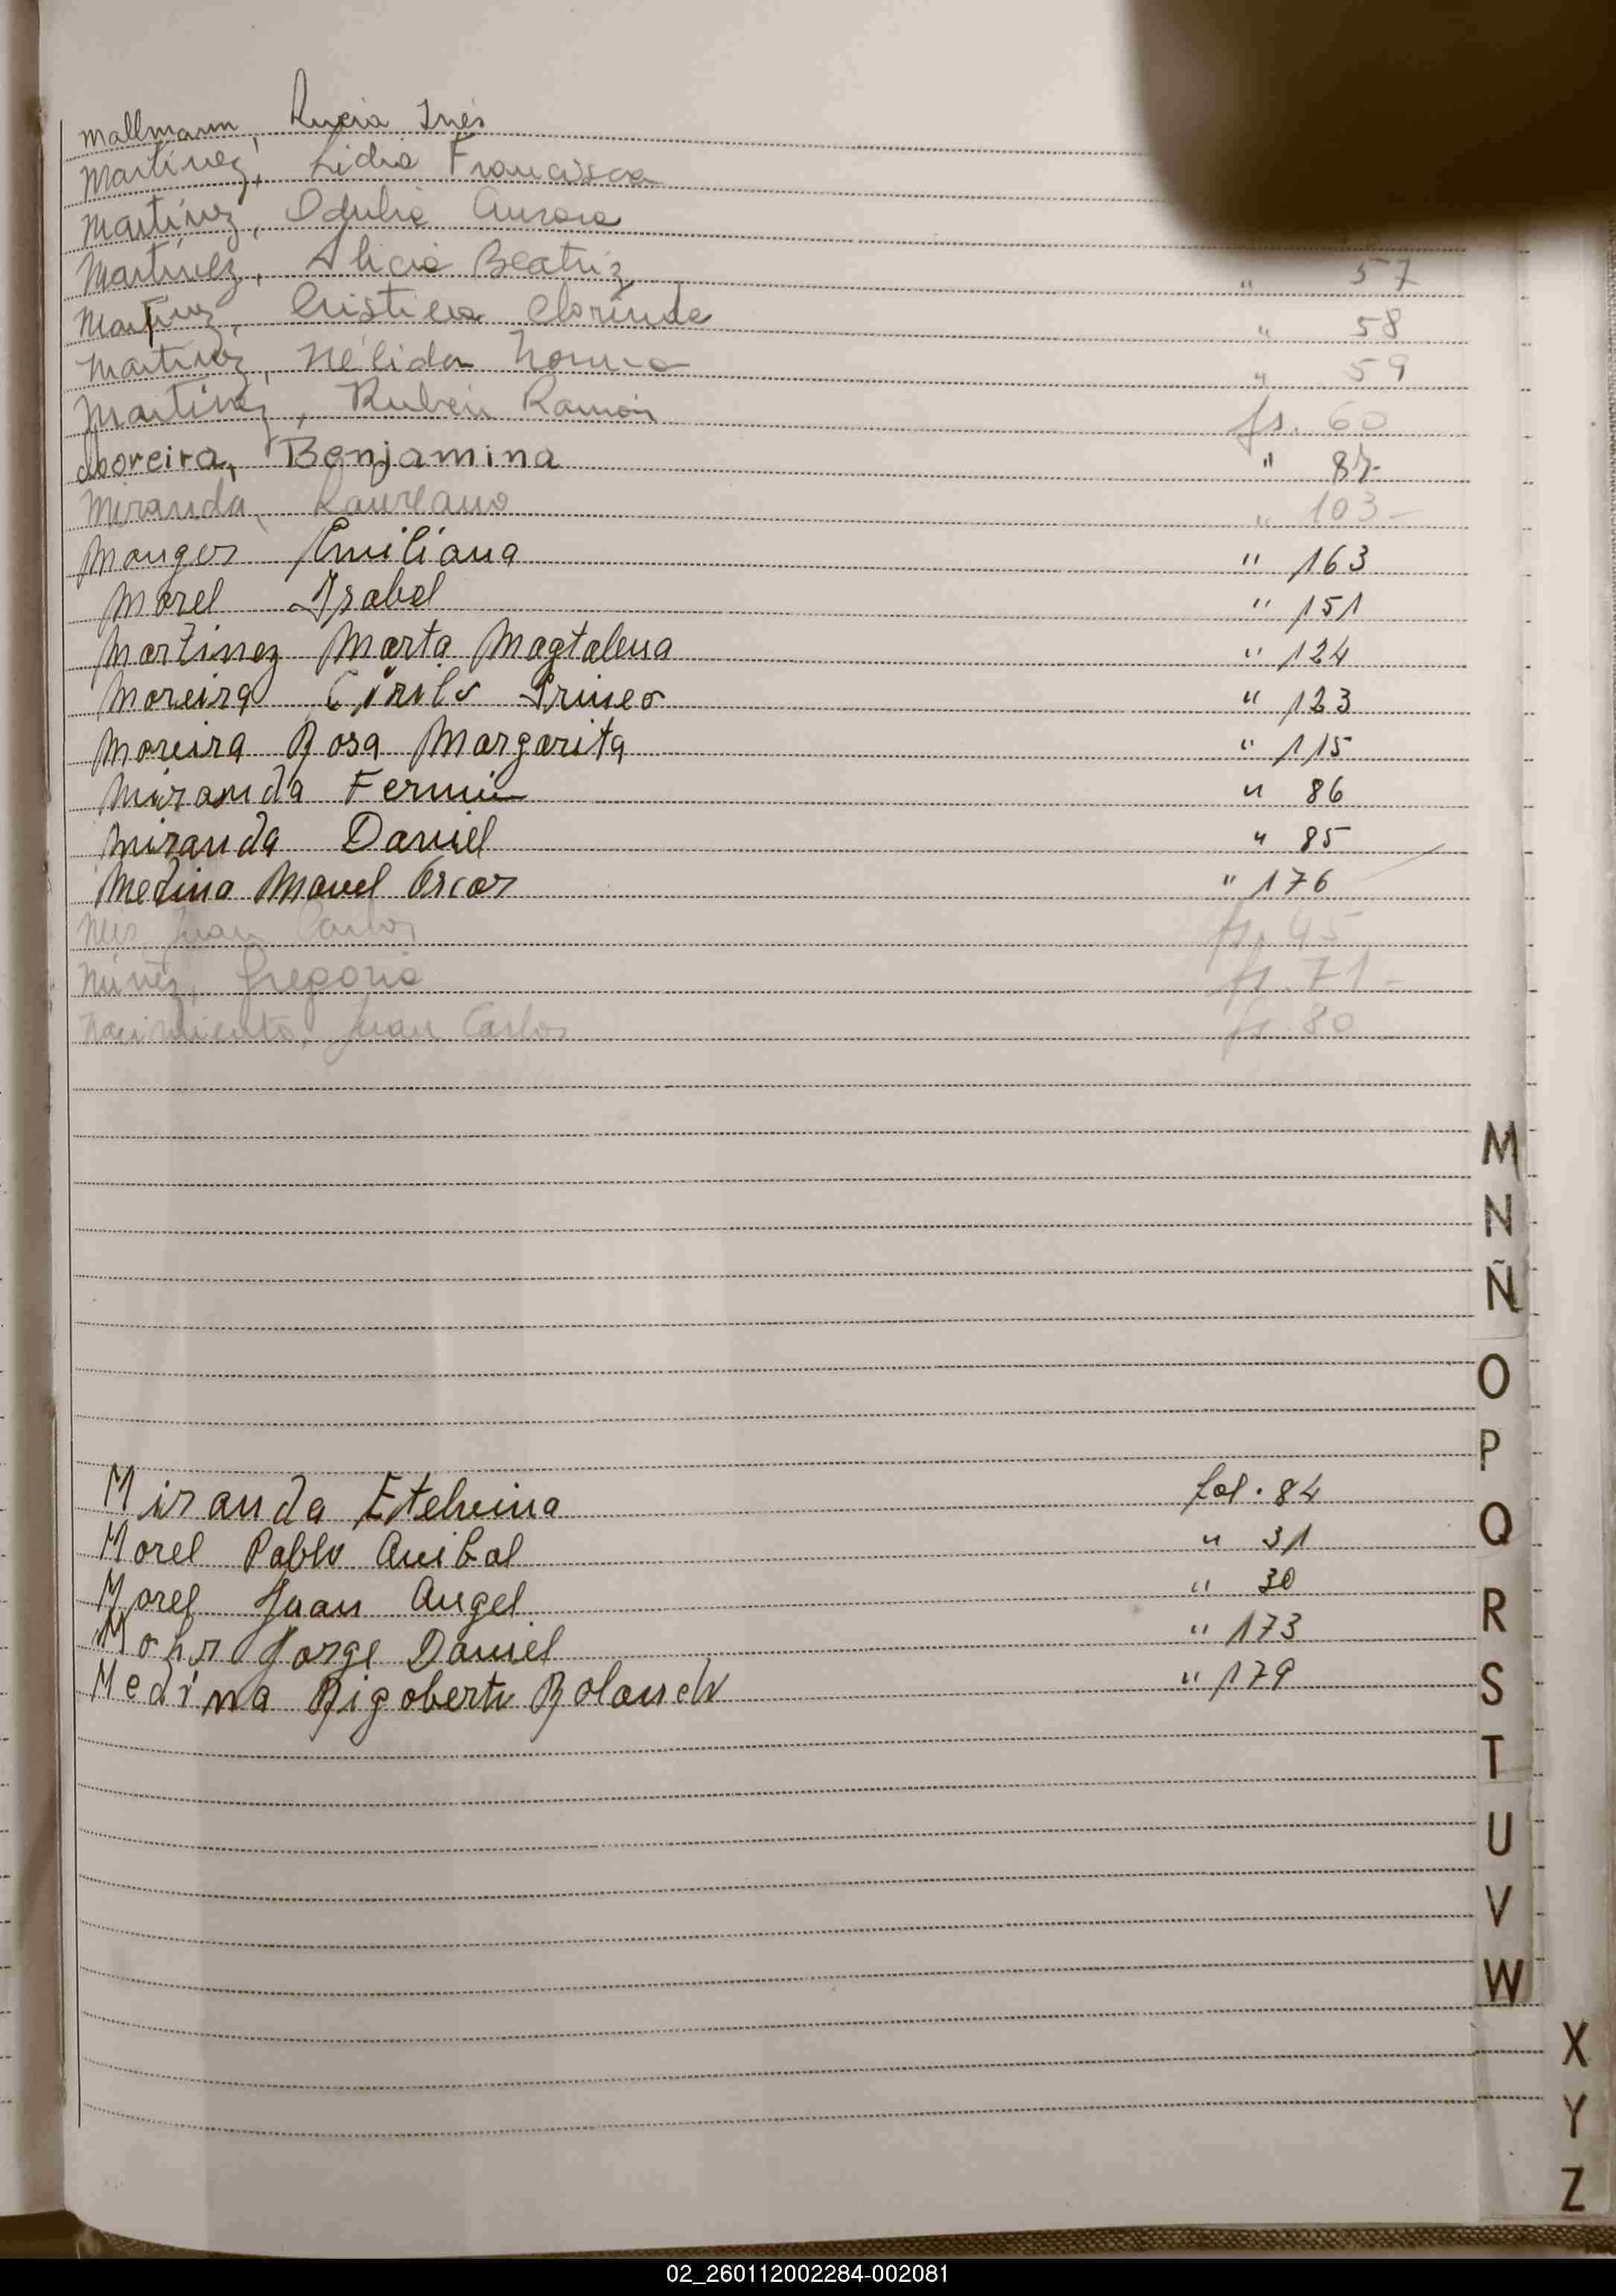 Mallmann, Lucia Inés
Martínez, Lidia Francisca
Martínez, Odulia Aurora
Martínez, Alicia Beatriz " 57
Martínez, Cristina Clorinda " 58
Martínez, Nélida Norma " 59
Martínez, Rubén Ramón fs. 60
Moreira, Benjamina " 87-
Miranda, Laureano " 103-
Monges Emiliana " 163
Morel Isabel " 151
Martinez Marta Magtalena " 124
Moreira Cirilo " 123
Moreira Rosa Margarita " 115
Miranda Fermin " 86
Miranda Daniel " 85
Medina Manel Oscar " 176
Juan Carlos fs. 45
Núñez, Gregoria fs. 71-
Nacimiento, Juan Carlos fs. 80
M
N
Ñ
O
P
Miranda Etelvina fol. 84
Q
Morel Pablo Anibal " 31
Morel Juan Angel " 30
R
Mohr Jorge Daniel " 173
Medina Rigoberto " 179
S
T
U
V
W
X
Y
Z
02_260112002284-002081